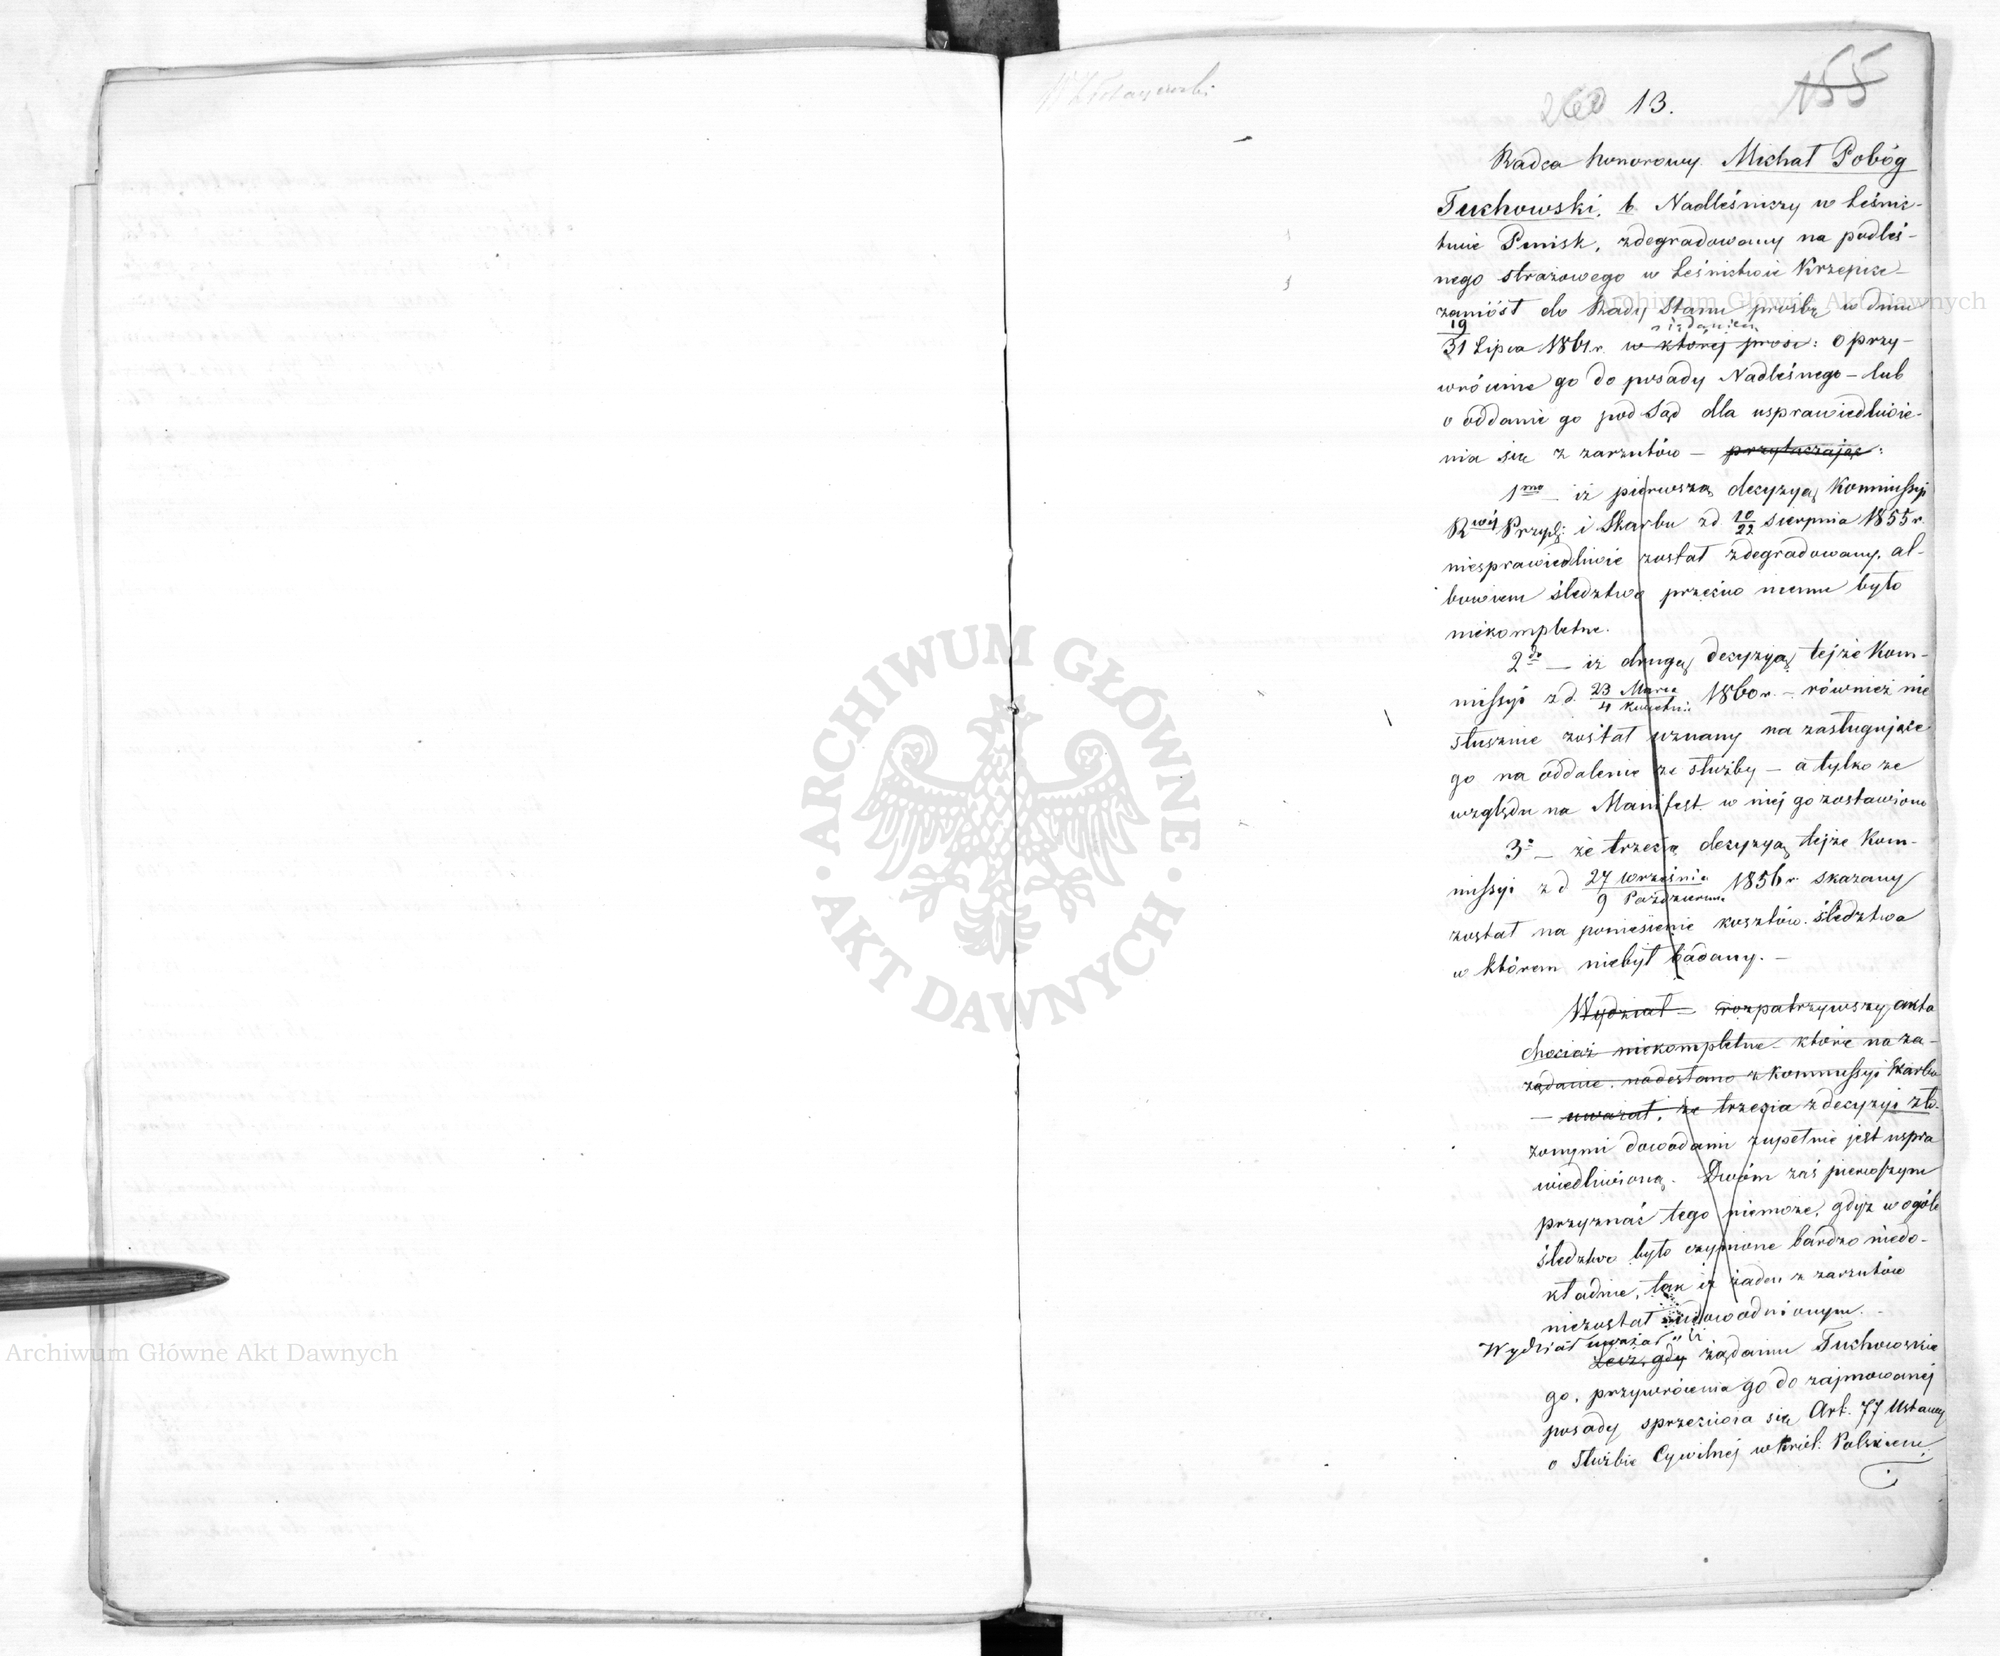 260 13. 155
Radca honorowy. Michał Pobóg
Tuchowski, b. Nadleśniczy w Leśnic-
twie Pmisk, zdegradowany na podleś-
nego strażowego w Leśnictwie Krzepice-
zaniósł do Rady Stanu prośbę w dniu
19/31 Lipca 1861 r. w której prosi: o przy-
wrócenie go do posady Nadleśnego – lub
o oddanie go pod Sąd dla usprawiedliwie-
nia się z zarzutów – przytaczając:
1mo – iż pierwszą decyzyą Kommissyi
Rwéj Przych: i Skarbu z d. 10/22 Sierpnia 1855 r.
niesprawiedliwie został zdegradowany, al-
bowiem śledztwo przeciw niemu było
niekompletne.
2do – iż drugą decyzyą tejże Kom-
missyi z d. 23 Marca/4 Kwietnia 1860 r. – również nie
słusznie został uznany na zasługujące
go na oddalenie ze służby – a tylko ze
względu na Manifest w niej go zostawiono
3o – że trzecią decyzyą tejże Kom-
missyi z d 27 Września/9 Października 1856 r. skazany
został na poniesienie kosztów śledztwa
w którem niebył badany. –
Wydział – rozpatrzywszy akta
chociaż niekompletne – które na za-
żądanie nadesłano z Kommissyi Skarbu
– uważał, że trzecia z decyzyi zło-
żonymi dowodami zupełnie jest uspra
wiedliwioną. Dwóm zaś pierwszym
przyznać tego niemoże, gdyż w ogóle
śledztwo było czynione bardzo niedo-
kładnie, tak iż żaden z zarzutów
niezostał udowodnionym. –
Wydział uważał iż
Lecz gdy żądaniu Tuchowskie
go, przywrócenia go do zajmowanej
posady sprzeciwia się Art. 77 Ustawy
o Służbie Cywilnej w Król: Polskiem;
ARCHIWUM GŁÓWNE AKT DAWNYCH
Archiwum Główne Akt Dawnych
Archiwum Główne Akt Dawnych